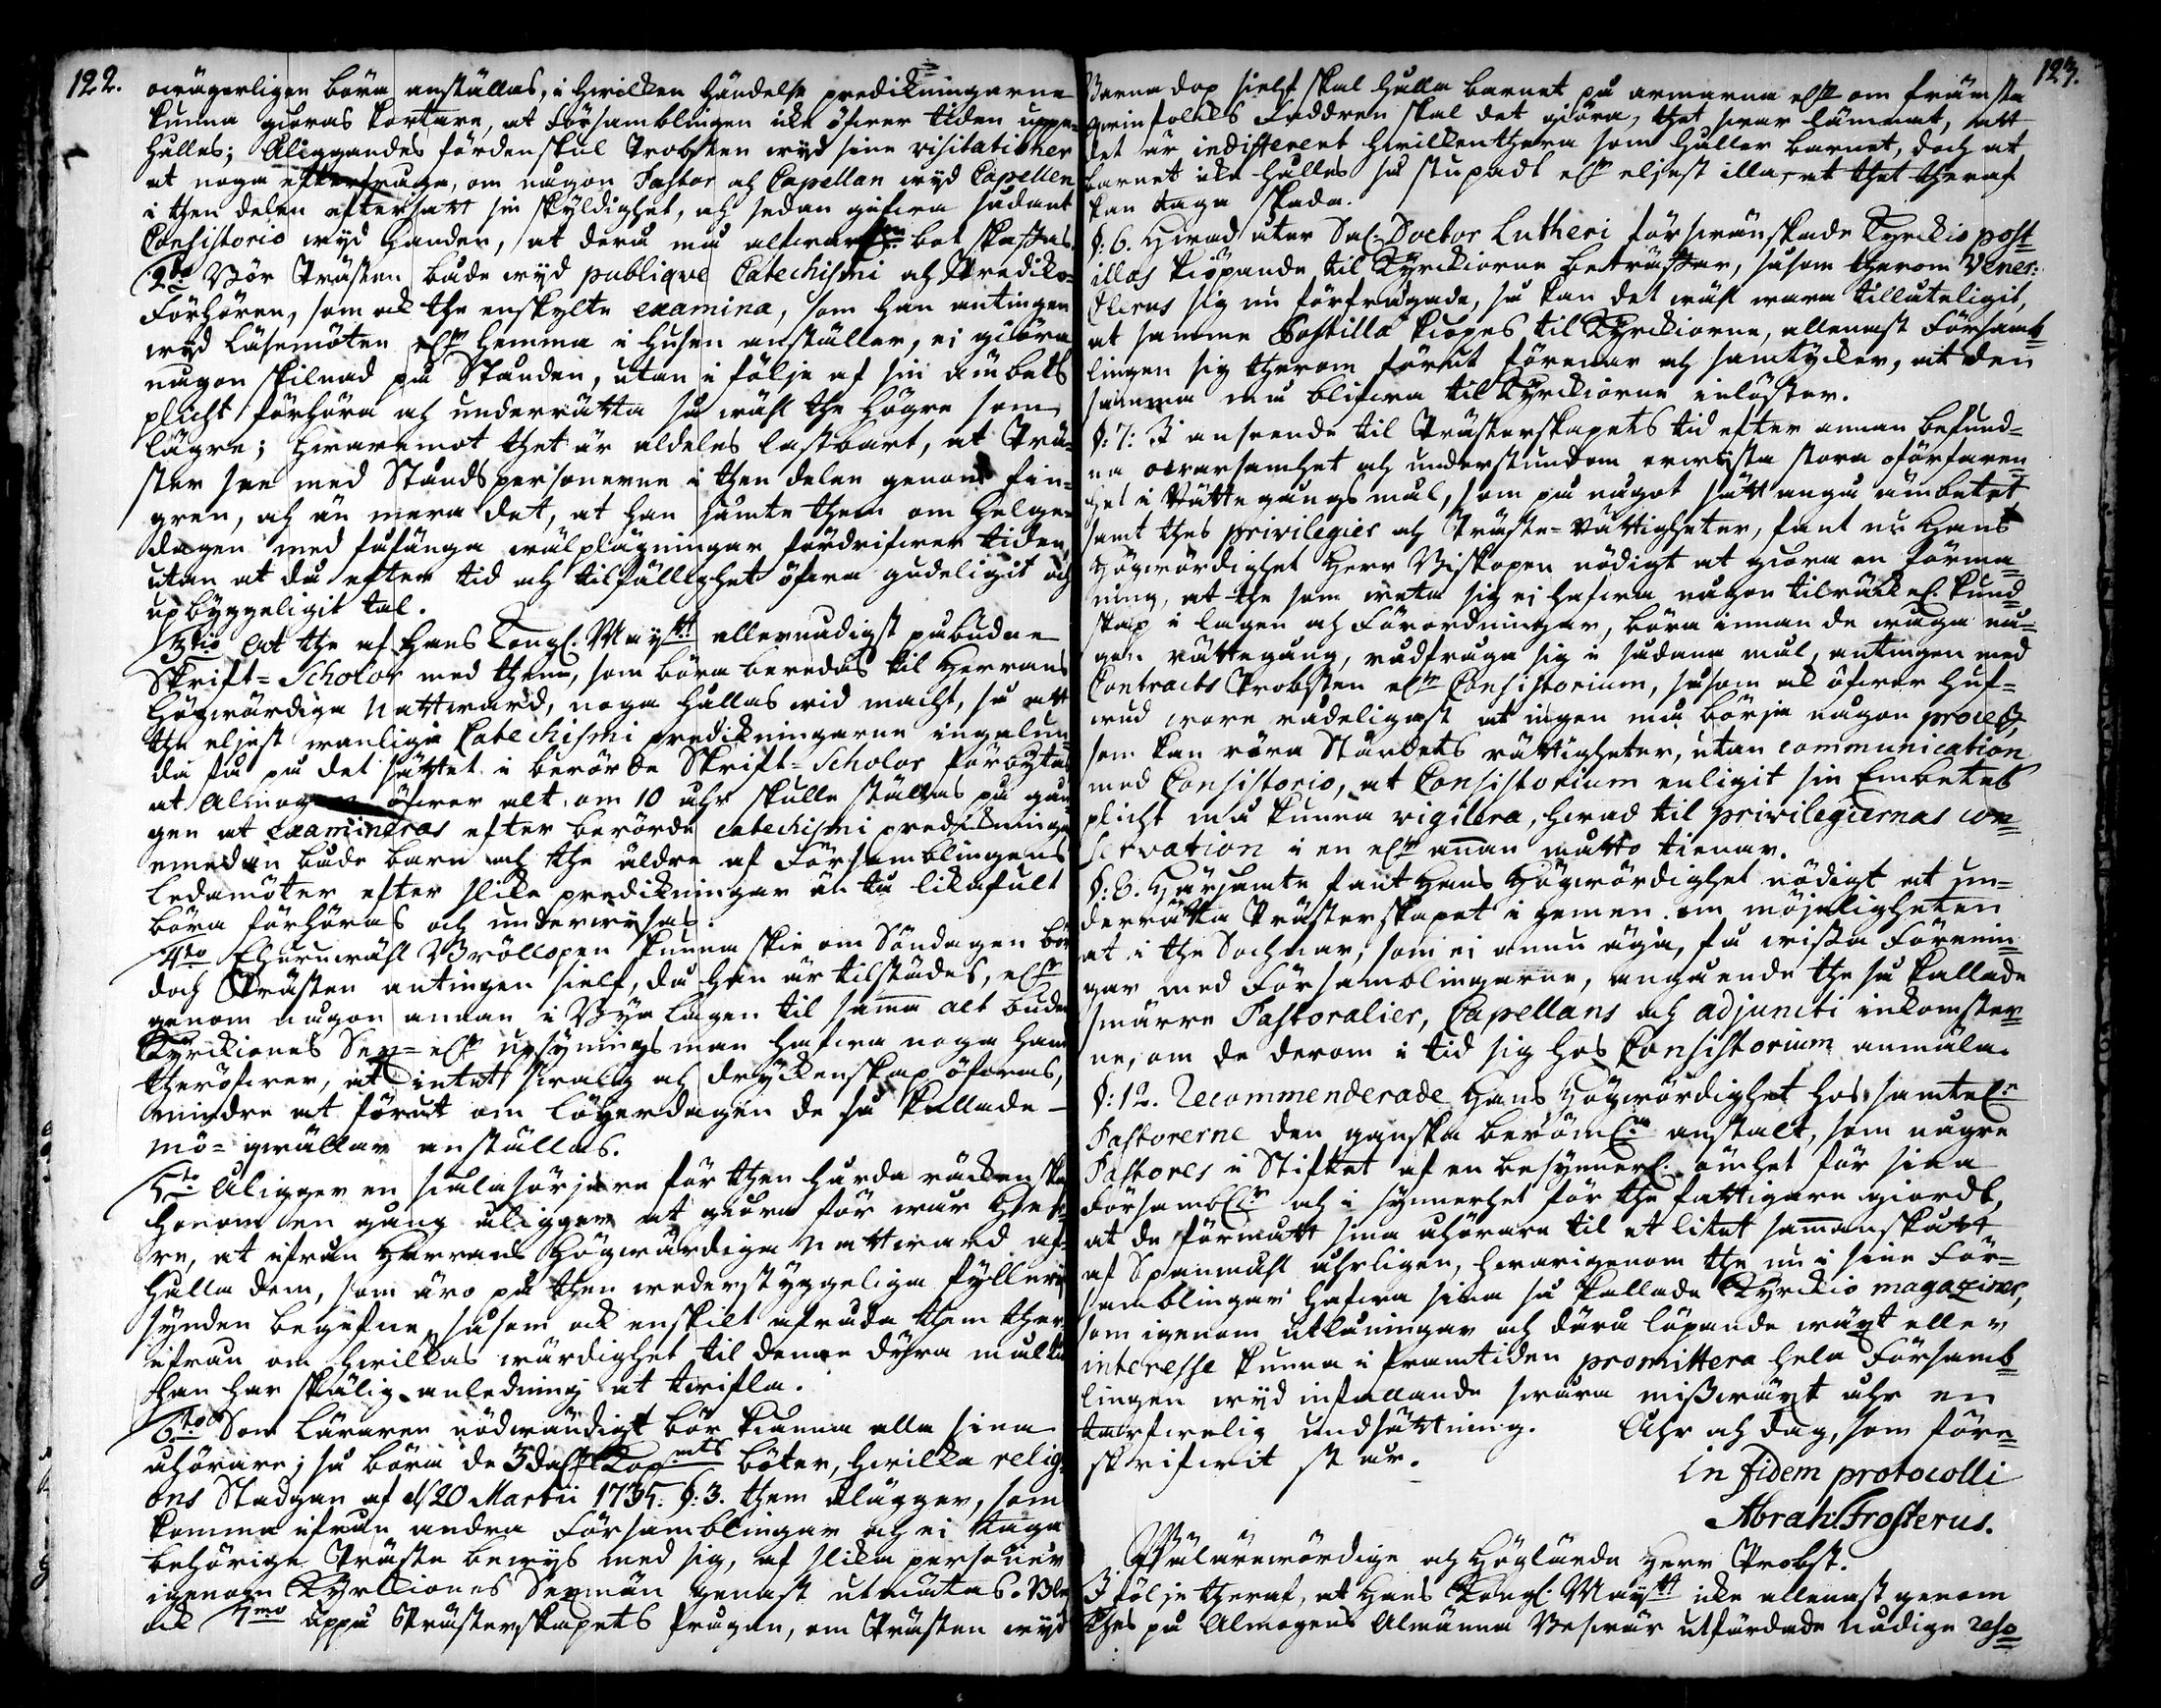 122.
owägerligen böra anställas, i hwilken händelse predikningarne
kunna giöras kortare, at Församblingen icke öfwer tiden uppe-
hålles; Åliggandes fördenskul Probsten wyd sine visitationer
at noga efterfråga, om någon Pastor och Capellan wyd Capellen
i then delen eftersatt sin skyldighet, och sedan gifwa sådant
Consistorio wyd handen, at derå må alfwarsam bot skaffas.
2do Bör Prästen både wyd publique Catechismi och Prediko-
Förhören, som ock the enskylte examina, som han antingen
wyd Läsemöten eller hemma i husen anställer, ei giöra
någon skilnad på Stånden, utan i följe af sin ämbets
plicht förhöra och underrätta så wähl the högre som
lägre; Hwaremot thet är aldeles lastbart, at Prä-
ster see med Ståndspersonerne i then delen genom fin-
gren, och än mera det, at han samte them om helge-
dagen med fåfänga wälplägningar fördrifwer tiden,
utan at då efter tid och tilfällighet öfwa gudeligit och
upbyggeligit tal.
3tio At the af Hans Kongl. Maytt allernådigst påbudne
Skrift-Scholor med them, som böra beredas til Herrans
Högwärdiga Nattward, noga hållas wid macht, så att
the eljest wanliga Catechismi predikningarne ingalun-
da få på det sättet i berörde Skrift-Scholor förbytas
at Almogen öfwer alt om 10 uhr skulle ställas på gån
gen at examineras efter berörde catechismi predikningar
emedan både barn och the äldre af Församblingens
Ledamöter efter slike predikningar ändå likafult
böra förhöras och underwisas.
4to Ehuruwähl Bröllopen kunna skie om Söndagen bör
doch Prästen antingen sielf, då han är tilstädes, eller
genom någon annan i Byalagen til samma alt både
Kyrkiones Sex- eller upsyningsman hafwa noga hand
theröfwer, at intet swalg och dryckenskap öfwas,
mindre at förut om Löгerdagen de så kallade
mö-qwällar anställas.
5to Åligger en siälasörjare för then hårda räckenskap
honom en gång åligger at giöra för wår Her-
re, at ifrån Herrans Högwärdiga Nattward af-
hålla dem, som äro på then wederstyggeliga fylleri
synden begifne, såsom ock enskilt afråda them ther
ifrån om hwilkas wärdighet til denne dyra måltid
han har skälig anledning at twifla.
6to Som Läraren nödwändigt bör känna alla sina
åhörare; så böra de 3 daler Kopmts böter, hwilka religi-
ons Stadgan af d 20 Martii 1735. §: 3. them ålägger, som
komma ifrån andra Församblingar och ei taga
behörige Präste bewys med sig, af slika personer
igenom Kyrkiones Sexmän genast utmätas. Ble
ock 7mo uppå Prästerskapets frågan, om Prästen wyd
123.
Barnadop sielf skal hålla barnet på armarna eller om främsta
qwinfolks Faddren skal det giöra, thet swar lämnat, att
det är indifferent hwilkenthera som håller barnet, doch at
barnet icke hålles så stupadt eller eljest illa, at thet theraf
kan taga skada.
§: 6. Hwad åter Sal. Doctor Lutheri försvänskade Kyrckio post
illas kiöpande til Kyrckiorne beträffar, såsom therom Vener:
Clerus sig nu förfrågade, så kan det wäl wara tillåteligit,
at samme Postilla kiöpes til Kyrckiorne, allenast Församb
lingen sig therom förut förenar och samtycker, at den
samma må blifwa til Kyrckiorne inlöster.
§: 7: I anseende til Prästerskapets tid efter annan befund-
na owarsamhet och understundom erwista stora oförfaren
het i Rättegångsmål, som på något sätt angå ämbetet
samt thes privilegier och Präste-rättigheter, fant nu Hans
Högwördighet Herr Biskopen nödigt at giöra en förma-
ning, at the som weta sig ei hafwa någon tilräckel. kund-
skap i Lagen och Förordningar, böra innan de wåga nå-
gon rättegång, rådfråga sig i sådana mål, antingen med
Contracts Probsten eller Consistorium, såsom ock öfwer huf-
wud wore rådeligast at ingen må börja någon process,
som kan röra Ståndets rättigheter, utan communication
med Consistorio, at Consistorium enligit sin Embetes
plicht må kunna vigilera, hwad til privilegiernas con-
servation i en eller annan måtto tienar.
§: 8. Härsamte fant Hans Högwördighet nödigt at un-
derrätta Prästerskapet i gemen om möjeligheten
at i the Sochnar, som ei ännu äga, få wissa Förenin-
gar med Församblingarne, angående the så kallade
smärre Pastoralier, Capellans och adjuncti inkomster
ne, om de derom i tid sig hos Consistorium anmäla.
§: 12. Recommenderade Hans Högwördighet hos samtel.
Pastorerne den ganska berömel. anstalt, som några
Pastores i Stiftet af en besynnerl. ömhet för sina
Församblr och i synnerhet för the fattigare giordt,
at de förmått sina åhörare til et litet sammanskått
af Spanmåhl åhrligen, hwarigenom the nu i sine För-
samblingar hafwa sina så kallade Kyrckio magaziner,
som igenom utlåningar och därå löpande wäxt eller
interesse kunna i framtiden promittera hela Församb
lingen wyd infallande swåra misswäxt åhr en
tarfwelig undsättning. Åhr och dag, som före-
skrifwit står.
In fidem protocolli
Abrah: Frosterus.
Wälärewördige och Höglärde Herr Probst.
I följe theraf, at Hans Kongl. Maytt icke allenast genom
thes på Almogens Allmänna Beswär utfärdade nådige reso